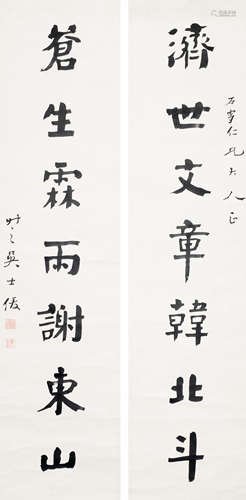 濟世文章韓北斗
石宰仁兄大人正
蒼生霖雨謝東山
吳士俊